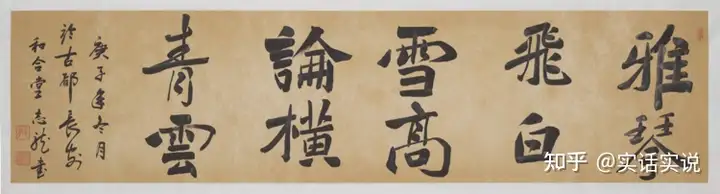 雅琴
飛白
雪高
論橫
青雲
庚子年冬月
於古都長安
和合堂志龍書
知乎 @实话实说